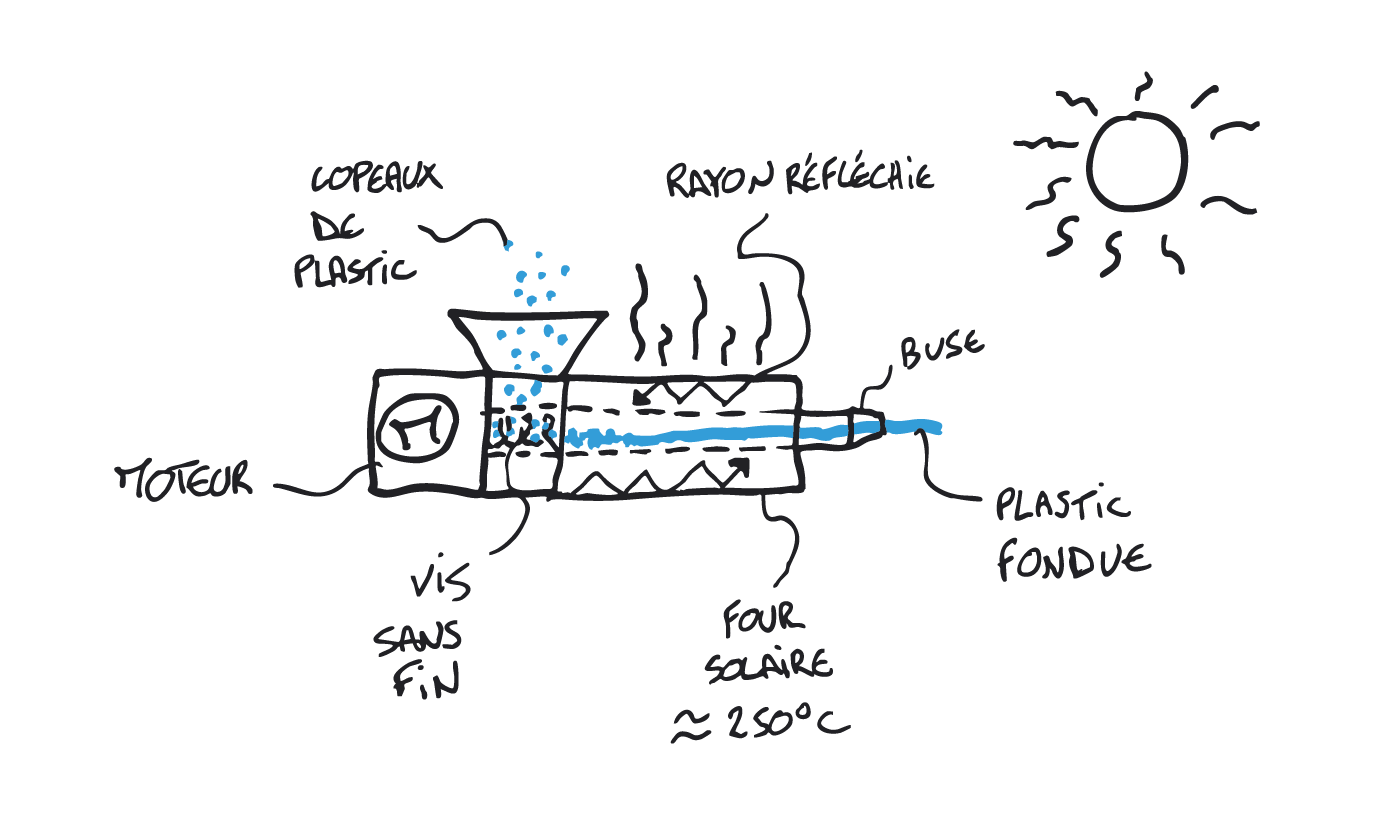 COPEAUX
DE
PLASTIC
RAYON RÉFLÉCHIE
BUSE
M
MOTEUR
PLASTIC
FONDUE
VIS
SANS
FIN
FOUR
SOLAIRE
≈ 250°C